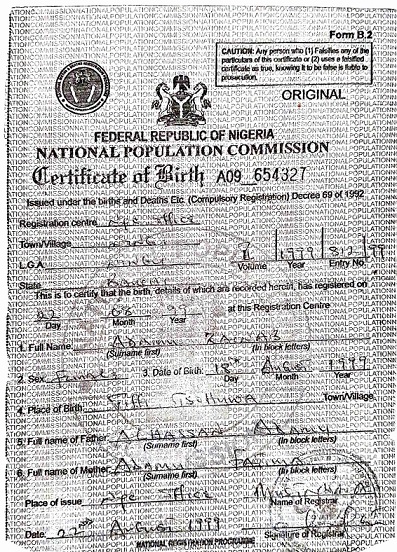 Form B.2
CAUTION: Any person who (1) Falsifies any of the
particulars of this certificate or (2) uses a falsified
certificate as true, knowing it to be false is liable to
prosecution.
ORIGINAL
FEDERAL REPUBLIC OF NIGERIA
NATIONAL POPULATION COMMISSION
Certificate of Birth A09 654327
Issued under the births and Deaths Etc (Compulsory Registration) Decree 69 of 1992
Registration centre Npc Office
Town/Village
L.G.A 1999 812
Volume Year Entry No
State Bauchi
This is to certify that the birth, details of which are recorded herein, has registered on
at this Registration Centre
Day Month Year
1. Full Name Adamu Zainab
(Surname first) (In block letters)
2. Sex Female 3. Date of Birth: 18th August 1999
Day Month Year
4. Place of Birth Town/Village
5. Full name of Father Alhassan Adamu
(Surname first) (In block letters)
6. Full name of Mother Adamu Fatima
(Surname first) (In block letters)
Place of issue Npc Office
Name of Registrar
Date 22nd August 1999
Signature of Registrar
NATIONAL REGISTRATION PROGRAMME